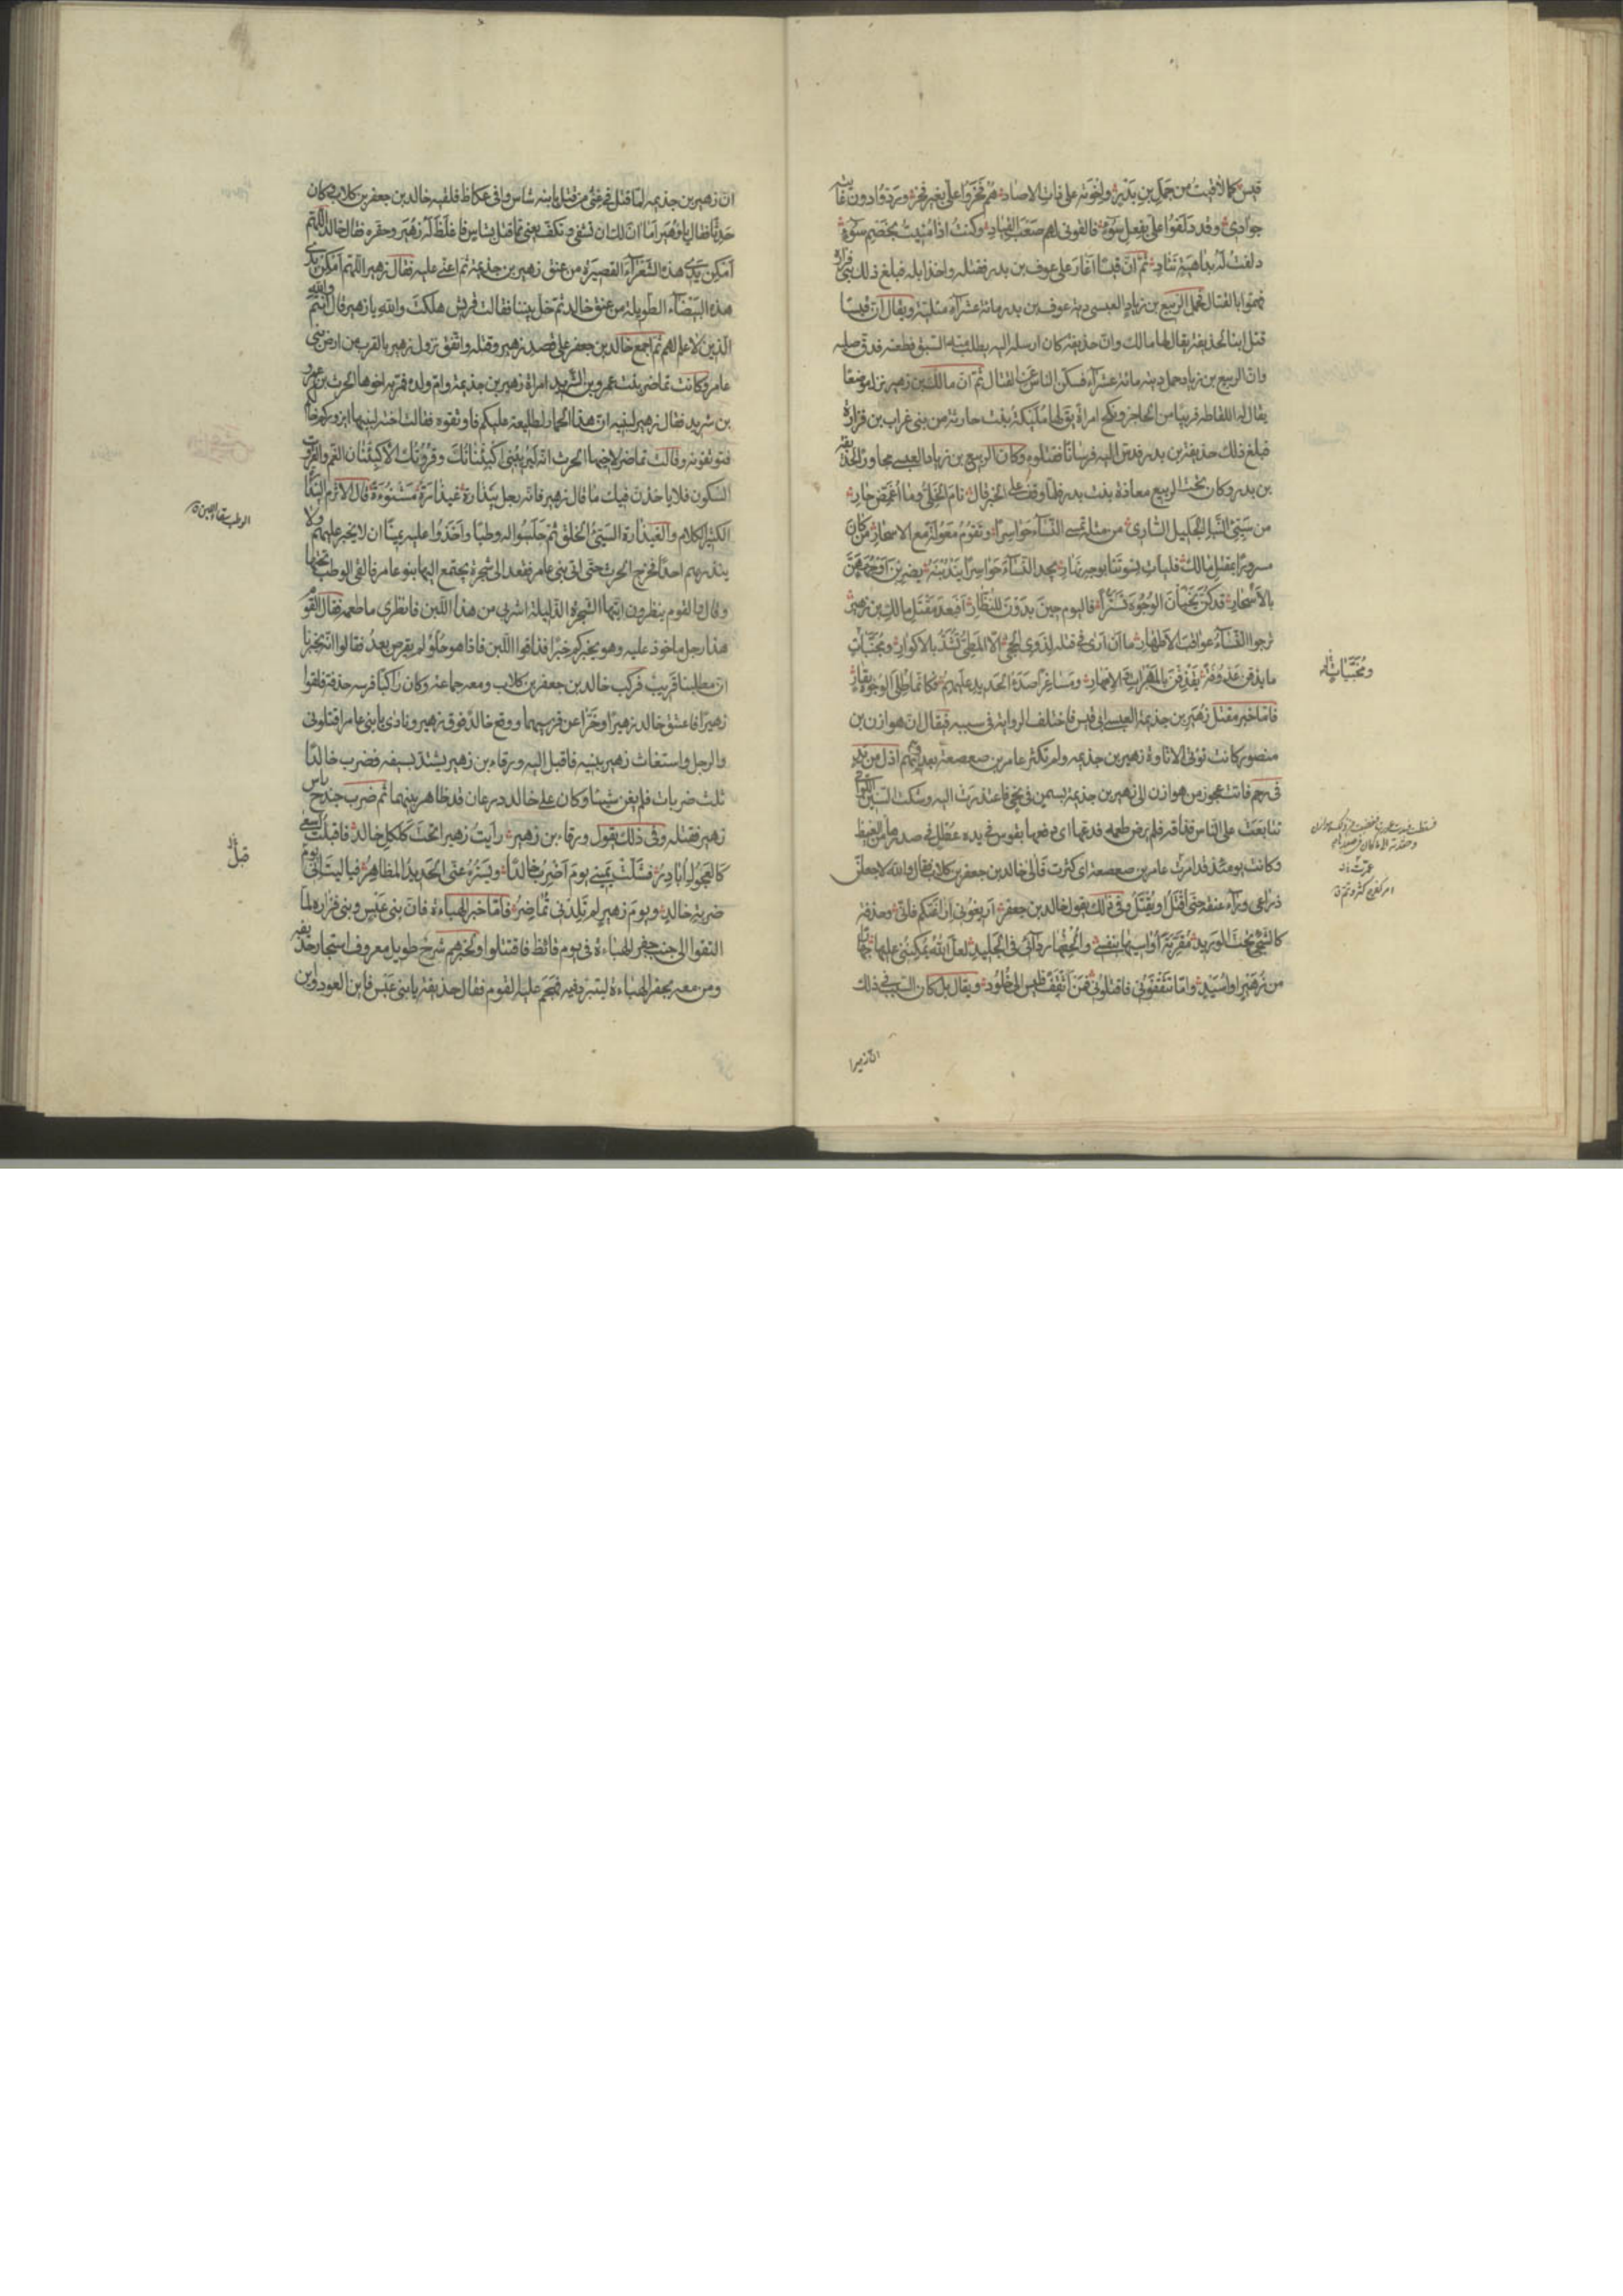 قيس كما لاقيتُ من حمل بن بدر واخوته على ذات الاصاد هم فخروا علىّ بغير فخر وردّوا دون غايته
جوادى وقد دلفوا الىّ بفعل سوء فالفونى لهم صعب القياد وكنت اذا مُنيت بخصم سوء
دلفت له بداهية نئاد ثم انّ قيسًا اغار على عوف بن بدر فقتله واخذ ابله فبلغ ذلك بنى فزارة
فهمّوا بالقتال فحمل الربيع بن زياد العبسى دية عوف بن بدر مائة عشراء متلية ويقال ان قيسًا
قتل ابنا لحذيفة يقال له مالك وانّ حذيفة كان ارسله اليه يطلب منه السبق فطعنه فدق صلبه
وان الربيع بن زياد حمل ديته مائة عشراء فسكن الناس عن القتال ثم انّ مالك بن زهير نزل موضعًا
يقال له اللقاطة قريبا من الحاجر ونكح امراة يقال لها مليكة بنت حارثة من بنى غراب بن فزارة
فبلغ ذلك حذيفة بن بدر فدسّ اليه فرسانًا فقتلوه وكان الربيع بن زياد العبسى مجاورًا لحذيفة
بن بدر وكان تحت الربيع معاذة بنت بدر فلما وقف على الخبر قال نام الخلىّ وما اغمّض حار
من سيّئ النبأ الجليل السارى من مثله تمسى النساء حواسرًا وتقوم معولة مع الاسحار من كان
مسرورًا بمقتل مالك فليات نسوتنا بوجه نهار يجد النساء حواسرًا يندبنه يضربن اوجههنّ
بالاسحار قد كنّ يخبأن الوجوه تستّرًا فاليوم حين بدون للنظّار أفبعد مقتل مالك بن زهير
ترجوا النساء عواقب الاطهار ما ان ارى فى قتله لذوى الحجى الا المطىّ تشدّ بالاكوار ومجنّبات
ما يذقن عذوفة يقذفن بالمهرات والامهار ومساعرًا صدأ الحديد عليهم فكانما طلى الوجوه بقار
فامّا خبر مقتل زهير بن جذيمة العبسى ابى قيس فاختلف الرواية فى سببه فيقال ان هوازن بن
منصور كانت تؤتى الاتاوة زهير بن جذيمه ولم تكثر عامر بن صعصعة بعد فهم اذل من يد
فى رحم فاتت عجوز من هوازن الى زهير بن جذيمة بسمن فى نحى فاعتذرت اليه وشكت السنين اللواتى
تتابعت على الناس فذاقه فلم يرض طعمه فدعّها اى دفعها بقوس فى يده عطل فى صدرها من الغيظ
وكانت يومئذ قد امرت عامر بن صعصعة اى كثرت فآلى خالد بن جعفر بن كلاب فقال والله لاجعلنّ
ذراعى وراء عنقه حتى اقتل او يقتل وفى ذلك يقول خالد بن جعفر اريغونى اراغتكم فانّى وحذفة
كالشجى تحت الوريد مقرّبة اواسيها بنفسى والحفها ردائى فى الجليد لعل الله يمكننى عليها جهارًا
من زهير او اسيد وامّا تثقفونى فاقتلونى فمن اثقف فليس الى خلود ويقال بل كان السبب فى ذلك
ومجنّبات
عمرت
ان زهيرا
ان زهير بن جذيمه لما قتل فى غنىّ من قتل بابنه شاس وافى عكاظ فلقيه خالد بن جعفر بن كلاب وكان
حدثًا فقال يا زهير اما آن لك ان تشتفى وتكفّ يعنى مما قتل بشاس فاغلظ له زهير وحقّره فقال خالد اللهم
امكن يدى هذه الشعراء القصيرة من عنق زهير بن جذيمة ثم اعنّى عليه فقال زهير اللهم امكن يدى
هذه البيضاء الطويلة من عنق خالد ثم خلّ بيننا فقالت قريش هلكت والله يا زهير قال انتم والله
الذين لا علم لهم ثم اجمع خالد بن جعفر على قصد زهير وقتله واتفق نزول زهير بالقرب من ارض بنى
عامر وكانت تماضر بنت عمرو بن الشريد امراة زهير بن جذيمة وام ولده فمرّ به اخوها الحرث بن عمرو
بن شريد فقال زهير لبنيه ان هذا الحمار لطليعة عليكم فاوثقوه فقالت اخته لبنيها ايزوركم خالكم
فتوثقونه وقالت تماضر لاخيها الحرث انه ليريبنى اكبئنانك وقروتك الاكبئنان الغمّ والقروت
السكون فلا ياخذنّ فيك ما قال زهير فانه رجل بيذارة غيذارة شنوءة قال الاثرم البيذارة
الكثير الكلام والغيذارة السيّئ الخلق ثم حلبوا له وطبًا واخذوا عليه يمينًا ان لا يخبر عليهم ولا
ينذر بهم احدًا فخرج الحرث حتى اتى بنى عامر فقعد الى شجرة يجتمع اليها بنو عامر فالقى الوطب تحتها
وقال والقوم ينظرون ايتها الشجرة الذليلة اشربى من هذا اللبن فانظرى ما طعمه فقال القوم
هذا رجل ماخوذ عليه وهو يخبركم خبرًا فذاقوا اللبن فاذا هو حلو لم يقرص بعد فقالوا انه يخبرنا
ان مطلبنا قريب فركب خالد بن جعفر بن كلاب ومعه جماعة وكان راكبًا فرسه حذفة فلقوا
زهيرًا فاعتنق خالد زهيرًا وخرّا عن فرسيهما ووقع خالد فوق زهير ونادى يا بنى عامر اقتلونى
والرجل واستغاث زهير ببنيه فاقبل اليه ورقاء بن زهير يشتدّ بسيفه فضرب خالدًا
ثلث ضربات فلم يغن شيئا وكان على خالد درعان قد ظاهر بينهما ثم ضرب جندح راس
زهير فقتله وفى ذلك يقول ورقاء بن زهير رايت زهيرا تحت كلكل خالد فاقبلت اسعى
كالعجول ابادر فشلّت يمينى يوم اضرب خالدًا ويستره عنّى الحديد المظاهر فياليت انّى يوم
ضربة خالد ويوم زهير لم تلدنى تماضر فامّا خبر الهباءة فان بنى عبس وبنى فزاره لما
التقوا الى جنب جفر الهباءة فى يوم قائظ فاقتتلوا ولخبرهم شرح طويل معروف استجار حذيفة
ومن معه بجفر الهباءة ليتبرّد فيه فهجم عليه القوم فقال حذيفة يا بنى عبس فاين العود واين
الوطب سقاء اللبن
قبل